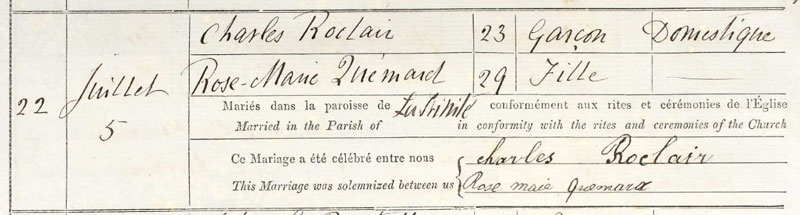 Charles Roclair 23 Garçon Domestique
Rose-Marie Quémard 29 Fille
22 Juillet 5
Mariés dans la paroisse de La Trinité conformément aux rites et cérémonies de l'Église
Married in the Parish of in conformity with the rites and ceremonies of the Church
Ce Mariage a été célébré entre nous charles Roclair
This Marriage was solemnized between us Rose maie quemard